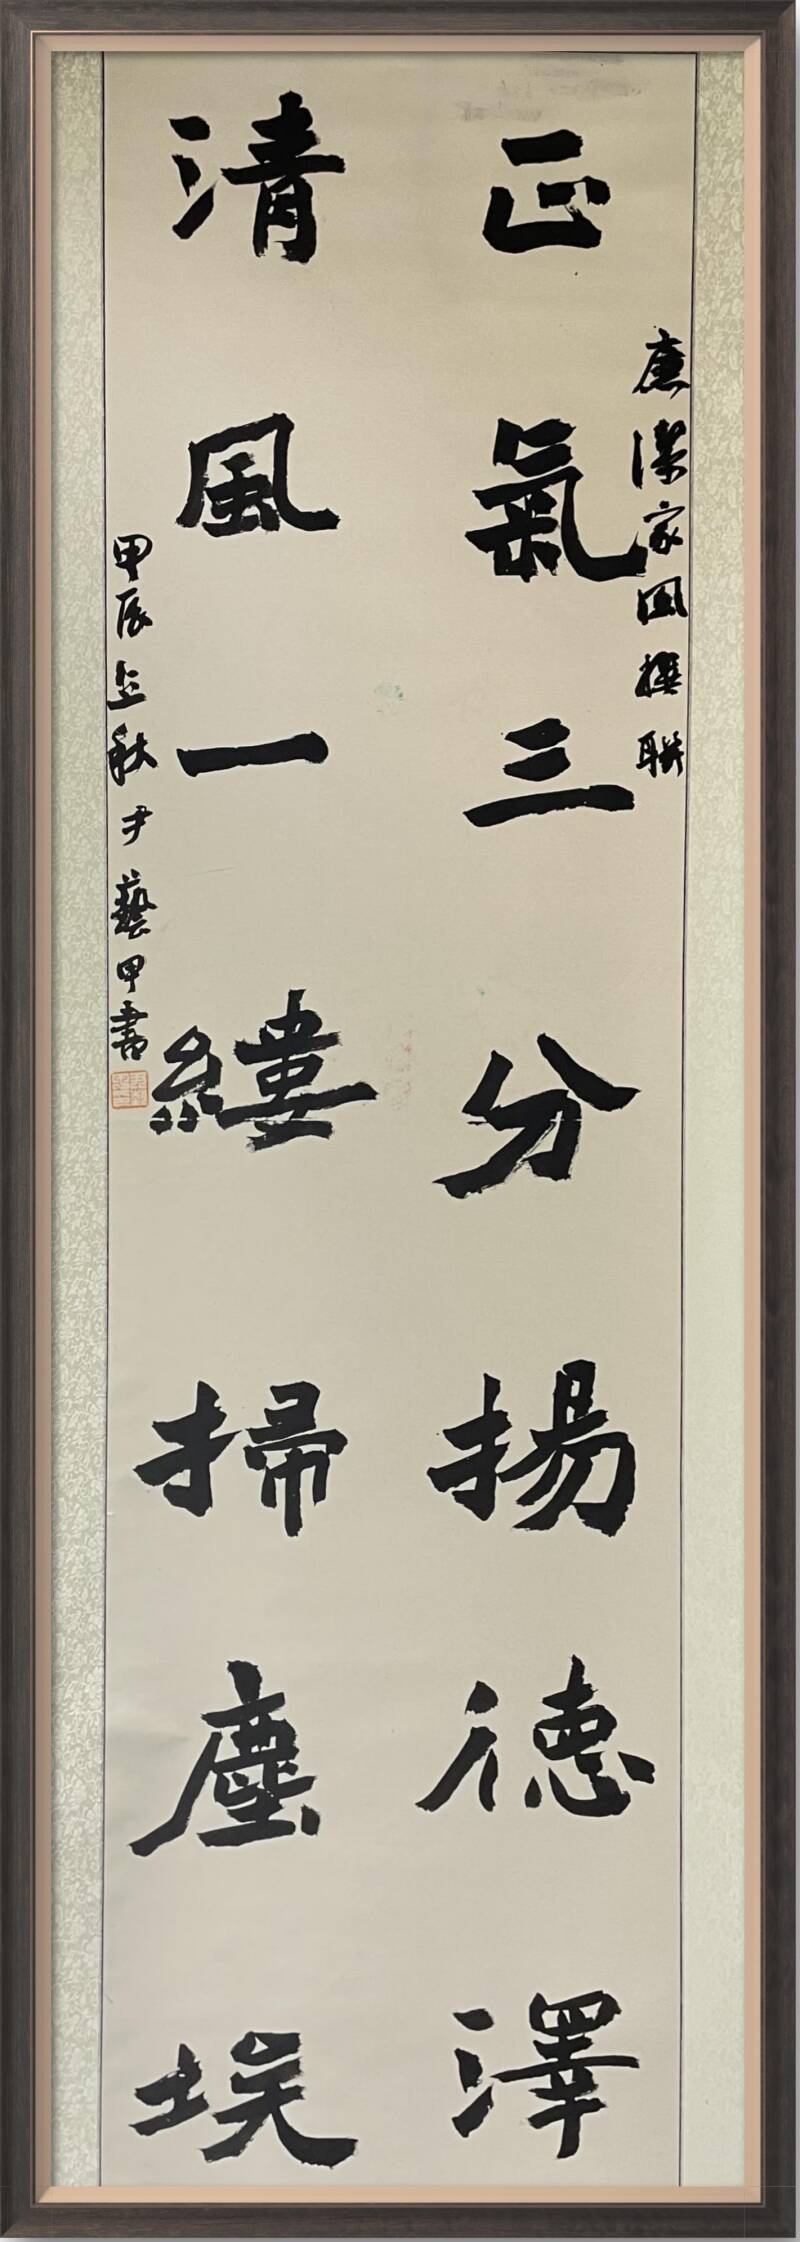 正氣三分揚德澤
廉潔家風撰聯
清風一縷掃塵埃
甲辰立秋尹藝甲書